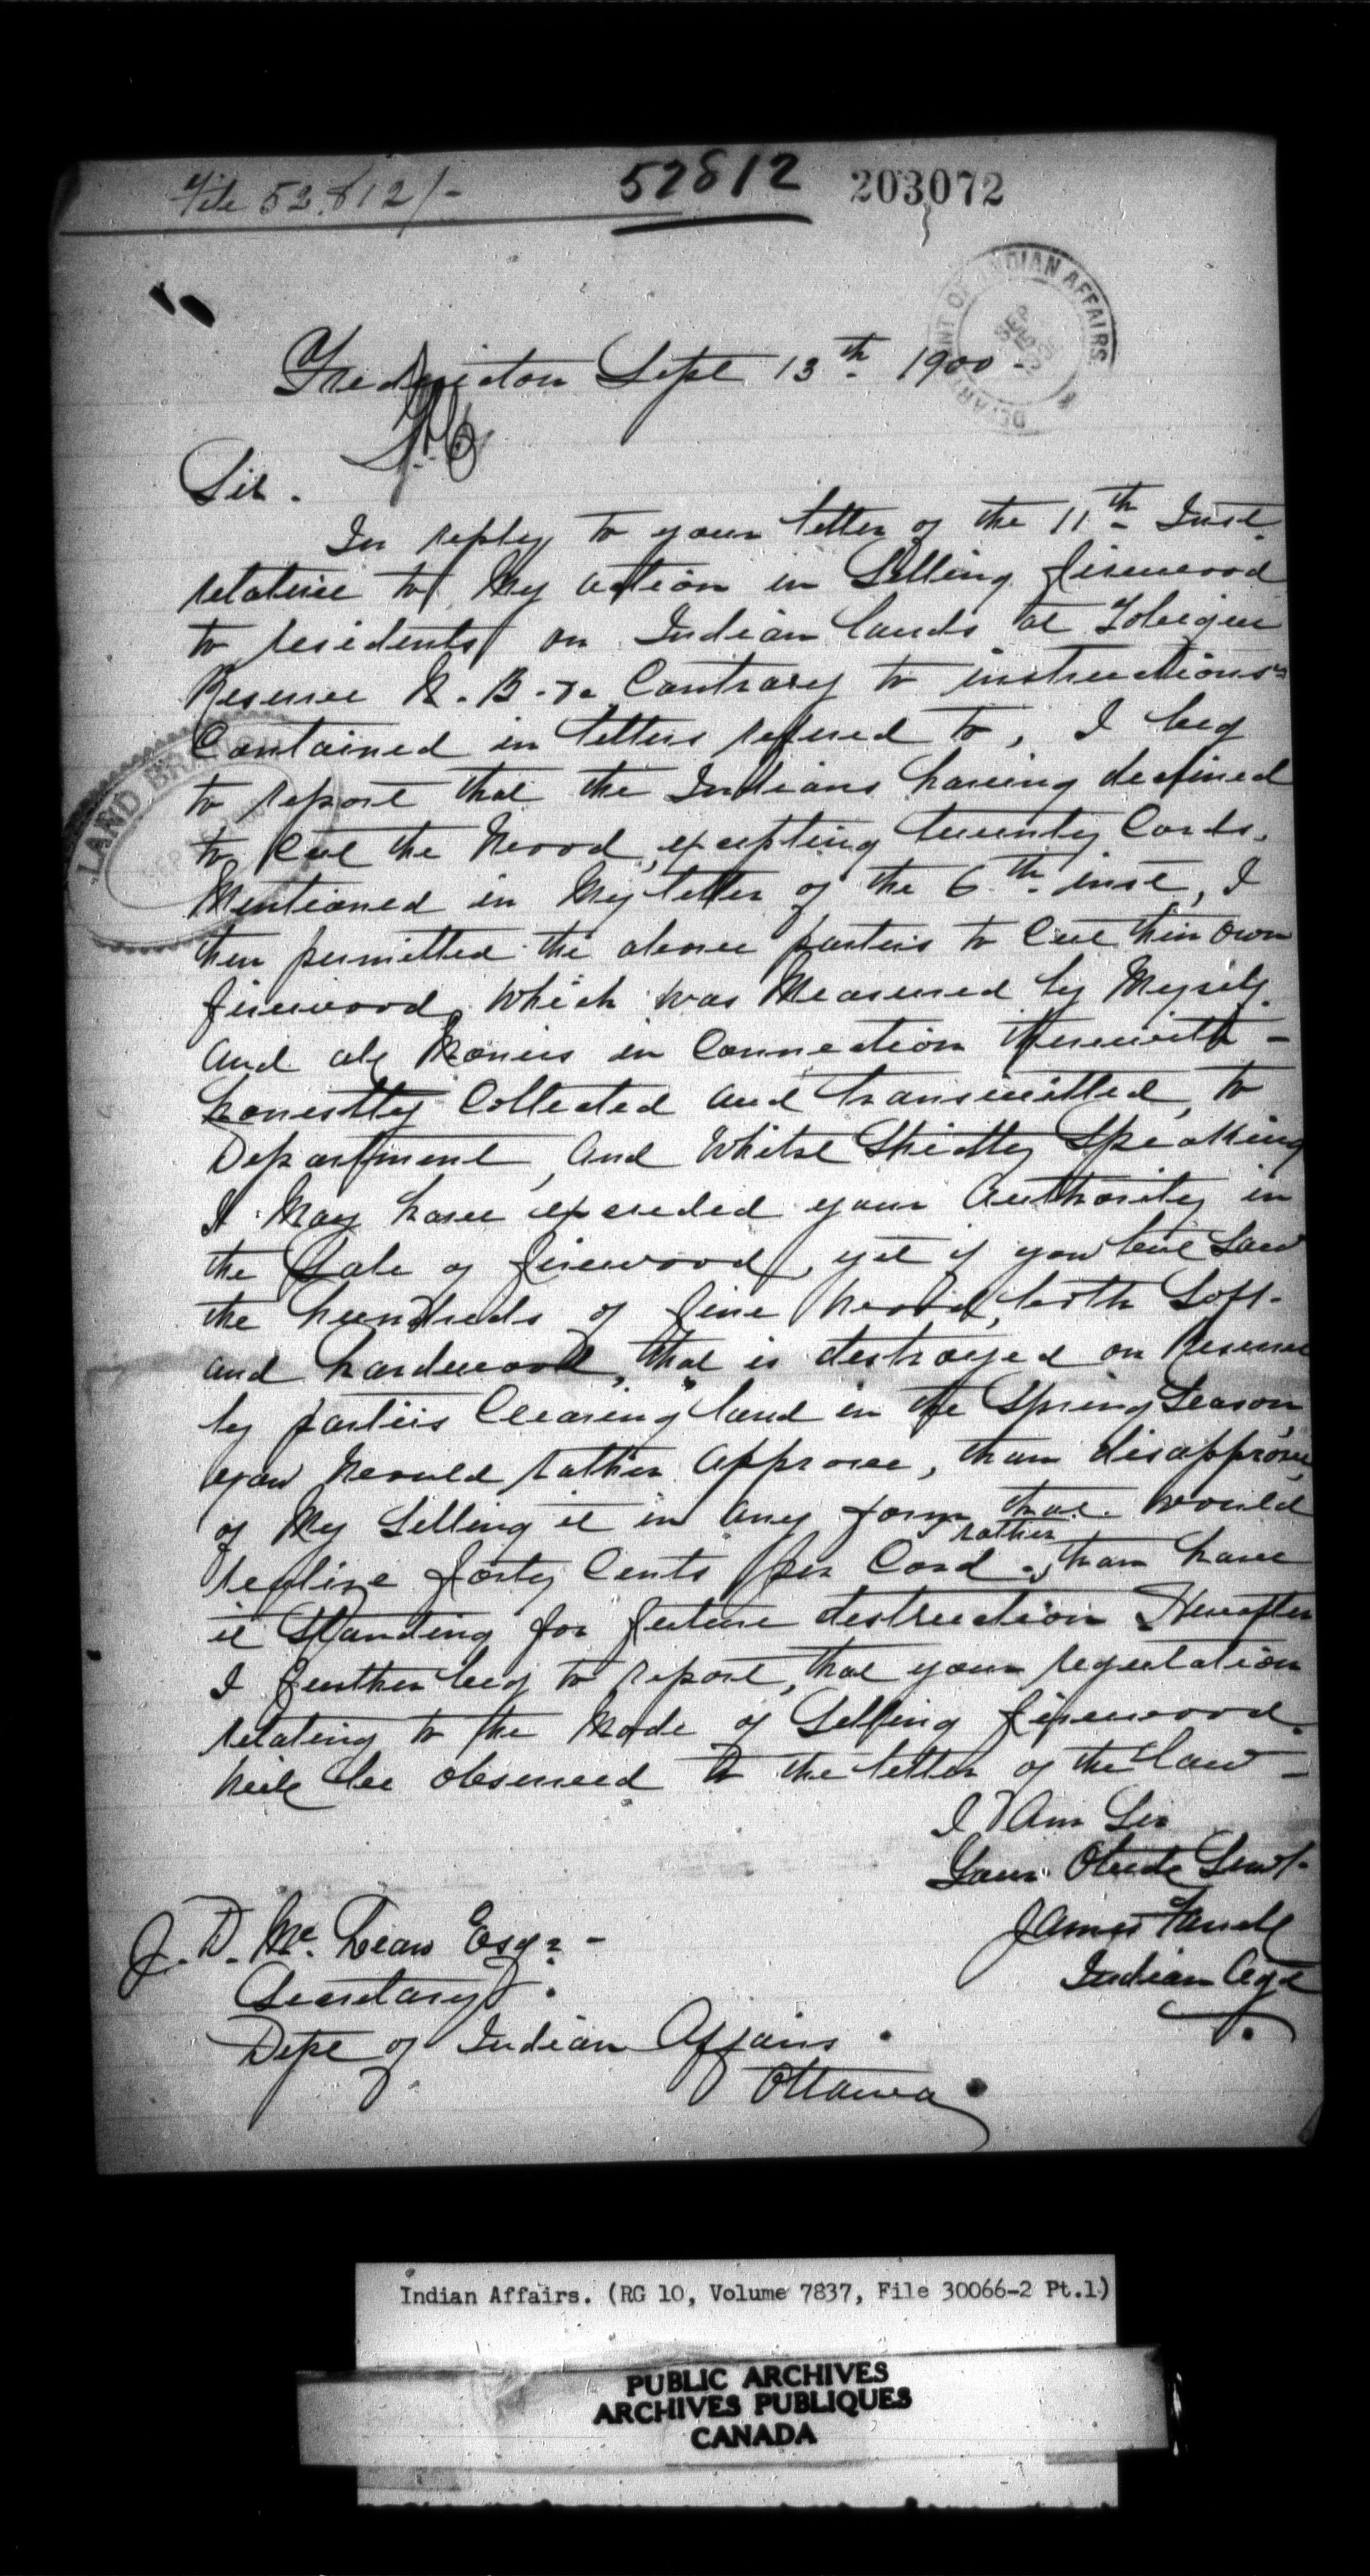 File 52.812/-
52812
203072
DEPARTMENT OF INDIAN AFFAIRS
SEP 15 1900
Fredericton Sept 13th 1900 -
Sir.
In reply to your letter of the 11th Inst
relative to My action in Selling firewood
to residents on Indian lands at Tobique
Reserve N.B. Contrary to instructions
Contained in letters refered to, I beg
to report that the Indians having declined
to Cut the Wood, excepting twenty Cords,
Mentioned in My letter of the 6th inst, I
then permitted the above parties to Cut their own
firewood, Which was Measured by Myself
and all Monies in Connection therewith -
honestly Collected and transmitted, to
Department, and Whilst Strictly Speaking
I May have exceeded your Authority in
the Sale of firewood, yet if you but Saw
the hundreds of fine wood, both Soft-
and hardwood, that is destroyed on Reserve
by parties Clearing land in the Spring Season,
you Would rather approve, than disapprove,
of My Selling it in any form that would
realize forty Cents per Cord, rather than have
it Standing for future destruction Hereafter
I further beg to report, that your regulation
relating to the Mode of Selling firewood.
Will be observed to the letter of the law -
I Am Sir
Your Obedt Servt.
James Farrell
Indian Agt
J. D. Mc. Lean Esqr -
Secretary.
Dept of Indian Affairs.
Ottawa
LAND BRANCH
SEP 1900
Indian Affairs. (RG 10, Volume 7837, File 30066-2 Pt.1)
PUBLIC ARCHIVES
ARCHIVES PUBLIQUES
CANADA